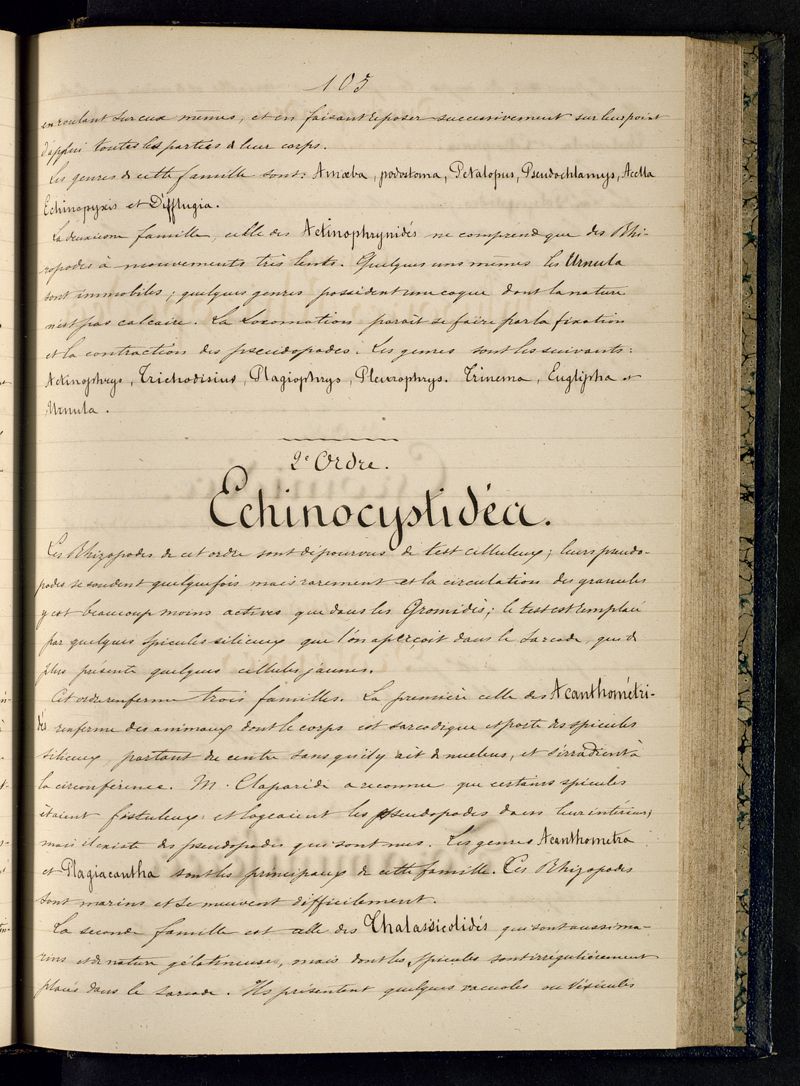 105
en roulant sur eux mêmes, et en faisant reposer successivement sur leur point
d'appui toutes les parties de leur corps.
Les genres de cette famille sont: Amœba, podostoma, Petalopus, Pseudochlamys, Acella
Echinopyxis et Difflugia.
La deuxieme famille, celle des Actinophrynidés ne comprend que des Rhi-
zopodes à mouvements très lents. Quelques uns mêmes les Urnula
sont immobiles; quelques genres possèdent une coque dont la nature
n'est pas calcaire. La Locomotion parait se faire par la fixation
et la contraction des pseudopodes. Les genres sont les suivants:
Actinophrys, Trichodisius, Plagiophrys, Pleurophrys. Trinema, Euglipha et
Urnula.
2e Ordre.
Echinocystidéa.
Les Rhizopodes de cet ordre sont dépourvus de test celluleux; leurs pseudo-
podes se soudent quelquefois mais rarement et la circulation des granules
y est beaucoup moins actives que dans les Gromidés; le test est remplacé
par quelques spicules siliceux que l'on aperçoit dans le sarcode, qui de
plus présente quelques cellules jaunes.
Cet ordre renferme trois familles. La première celle des Acanthométri-
dés renferme des animaux dont le corps est sarcodique et porte des spicules
siliceux, partant du centre sans qu'il y ait de nucleus, et s'irradient à
la circonférence. M. Claparède a reconnu que certains spicules
étaient fistuleux et logeaient les pseudopodes dans leur intérieur;
mais il existe des pseudopodes qui sont nus. Les genres Acanthometra
et Plagiacantha sont les principaux de cette famille. Ces Rhizopodes
sont marins et se meuvent difficilement.
La seconde famille est celle des Thalassicolidés qui sont aussi ma-
rins et de nature gélatineuse, mais dont les spicules sont irrégulièrement
placés dans le sarcode. Ils présentent quelques vacuoles ou vésicules